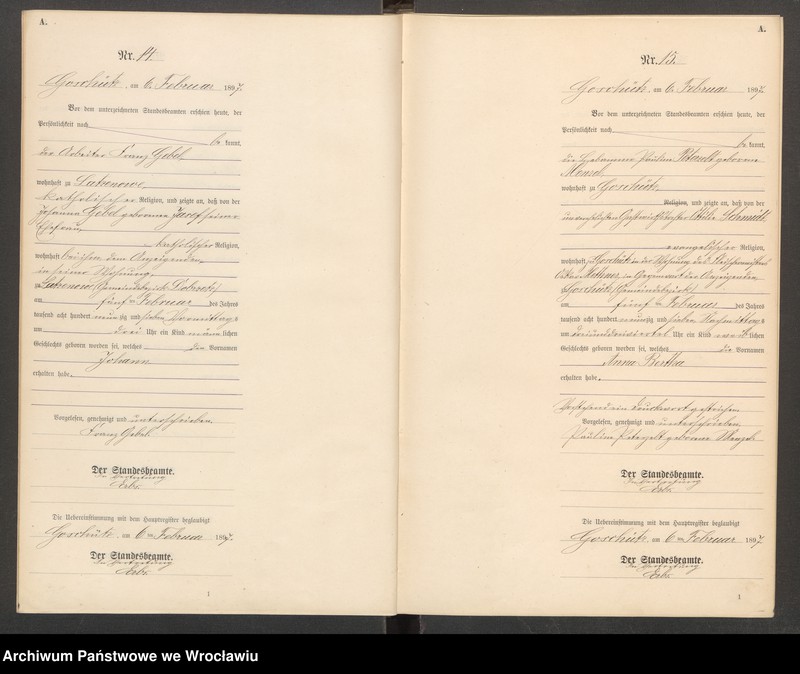 A.
Nr. 14.
Goschütz, am 6. Februar 1897.
Vor dem unterzeichneten Standesbeamten erschien heute, der
Persönlichkeit nach
be kannt,
der Arbeiter Franz Gebel
wohnhaft zu
katholischer Religion, und zeigte an, daß von der
Johanna Gebel geborene seiner
Ehefrau,
katholischer Religion,
wohnhaft bei ihm, dem Anzeigenden
in seiner Wohnung
zu
am fünften Februar des Jahres
tausend acht hundert neunzig und sieben Vormittags
um drei Uhr ein Kind männlichen
Geschlechts geboren worden sei, welches den Vornamen
Johann
erhalten habe.
Vorgelesen, genehmigt und unterschrieben.
Franz Gebel.
Der Standesbeamte.
In Vertretung
Die Uebereinstimmung mit dem Hauptregister beglaubigt
Goschütz, am 6ten Februar 1897.
Der Standesbeamte.
In Vertretung
1
A.
Nr. 15.
Goschütz, am 6. Februar 1897.
Vor dem unterzeichneten Standesbeamten erschien heute, der
Persönlichkeit nach
be kannt,
die Hebamme Pauline geborene
wohnhaft zu Goschütz,
Religion, und zeigte an, daß von der
unverehelichten Schmidt
evangelischer Religion,
wohnhaft zu Goschütz in der Wohnung des
in Gegenwart der Anzeigenden
zu Goschütz
am fünften Februar des Jahres
tausend acht hundert neunzig und sieben Nachmittags
um dreiunddreiviertel Uhr ein Kind weiblichen
Geschlechts geboren worden sei, welches die Vornamen
Anna Bertha
erhalten habe.
Vorstehend ein Druckwort gestrichen.
Vorgelesen, genehmigt und unterschrieben
Pauline geborene
Der Standesbeamte.
In Vertretung
Die Uebereinstimmung mit dem Hauptregister beglaubigt
Goschütz, am 6ten Februar 1897.
Der Standesbeamte.
In Vertretung
1
Archiwum Państwowe we Wrocławiu